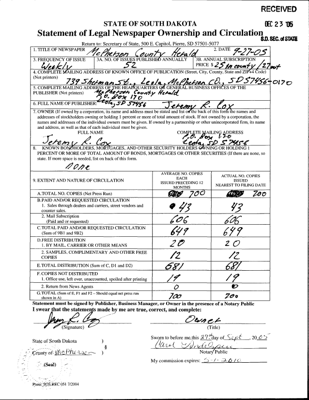 RECEIVED
DEC 23 '05
S.D. SEC. OF STATE
STATE OF SOUTH DAKOTA
Statement of Legal Newspaper Ownership and Circulation
Return to: Secretary of State, 500 E. Capitol, Pierre, SD 57501-5077
1. TITLE OF NEWSPAPER McPherson County Herald 2. DATE 9-27-05
3. FREQUENCY OF ISSUE Weekly
3A. NO. OF ISSUES PUBLISHED ANNUALLY 52
3B. ANNUAL SUBSCRIPTION PRICE
4. COMPLETE MAILING ADDRESS OF KNOWN OFFICE OF PUBLICATION (Street, City, County, State and ZIP+4 Code) (Not printers)
739 Sherman St., Leola, McPherson Co., SD 57456-0170
5. COMPLETE MAILING ADDRESS OF THE HEADQUARTERS OR GENERAL BUSINESS OFFICES OF THE PUBLISHER McPherson County Herald
P.O. Box 170
Leola, SD 57456
6. FULL NAME OF PUBLISHER: Jeremy R. Cox
7. OWNER (If owned by a corporation, its name and address must be stated and on the back of this form the names and
addresses of stockholders owning or holding 1 percent or more of total amount of stock. If not owned by a corporation, the
names and addresses of the individual owners must be given. If owned by a partnership or other unincorporated firm, its name
and address, as well as that of each individual must be given.
FULL NAME COMPLETE MAILING ADDRESS
Jeremy R. Cox PO Box 170
Leola, SD 57456
8. KNOWN BONDHOLDERS, MORTGAGES, AND OTHER SECURITY HOLDERS OWNING OR HOLDING 1
PERCENT OR MORE OF TOTAL AMOUNT OF BONDS, MORTGAGES OR OTHER SECURITIES (If there are none, so
state. If more space is needed, list on back of this form.
none
9. EXTENT AND NATURE OF CIRCULATION
AVERAGE NO. COPIES EACH ISSUED PRECEDING 12 MONTHS
ACTUAL NO. COPIES ISSUED NEAREST TO FILING DATE
A. TOTAL NO. COPIES (Net Press Run) 700 700
B. PAID AND/OR REQUESTED CIRCULATION
1. Sales through dealers and carriers, street vendors and counter sales. 43 43
2. Mail Subscription (Paid and or requested) 606 606
C. TOTAL PAID AND/OR REQUESTED CIRCULATION (Sum of 9B1 and 9B2) 649 649
D. FREE DISTRIBUTION
1. BY MAIL, CARRIER OR OTHER MEANS 20 20
2. SAMPLES, COMPLIMENTARY AND OTHER FREE COPIES 12 12
E. TOTAL DISTRIBUTION (Sum of C, D1 and D2) 681 681
F. COPIES NOT DISTRIBUTED
1. Office use, left over, unaccounted, spoiled after printing 19 19
2. Return from News Agents 0 0
G. TOTAL (Sum of E, F1 and F2 - Should equal net press run shown in A) 700 700
Statement must be signed by Publisher, Business Manager, or Owner in the presence of a Notary Public
I swear that the statements made by me are true, correct, and complete:
Jeremy R. Cox Owner
(Signature) (Title)
State of South Dakota )
County of McPherson )
(Seal)
Sworn to before me this 27 day of Sept 2005
Notary Public
My commission expires: